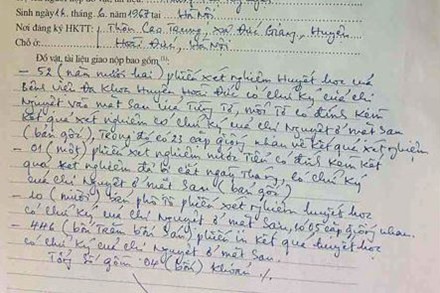 Sinh ngày 16. tháng. 6. năm 1967 tại Hà Nội
Nơi đăng ký HKTT: Thôn Cao Trung, xã Đức Giang, Huyện
Chỗ ở: Hoài Đức, Hà Nội
Đồ vật, tài liệu giao nộp bao gồm (1):
- 52 (năm mươi hai) phiếu xét nghiệm Huyết học của
Bệnh viện Đa Khoa Huyện Hoài Đức có chữ ký của chị
Nguyệt vào mặt sau của từng tờ, mỗi tờ có đính kèm
Kết quả xét nghiệm có chữ ký của chị Nguyệt ở mặt sau
(bản gốc), Trong đó có 23 cặp giống nhau về kết quả xét nghiệm
- 01 (một) phiếu xét nghiệm nước tiểu có đính kèm kết
quả xét nghiệm đã bị cắt ngày tháng, có chữ ký
của chị Nguyệt ở mặt sau (bản gốc)
- 10 (mười) bản phô tô phiếu xét nghiệm huyết học
có chữ ký của chị Nguyệt ở mặt sau, có 05 cặp giống nhau.
- 446 (bốn trăm bốn sáu) phiếu in kết quả huyết học
có chữ ký của chị Nguyệt ở mặt sau.
Tổng số gồm 04 (bốn) khoản ./.